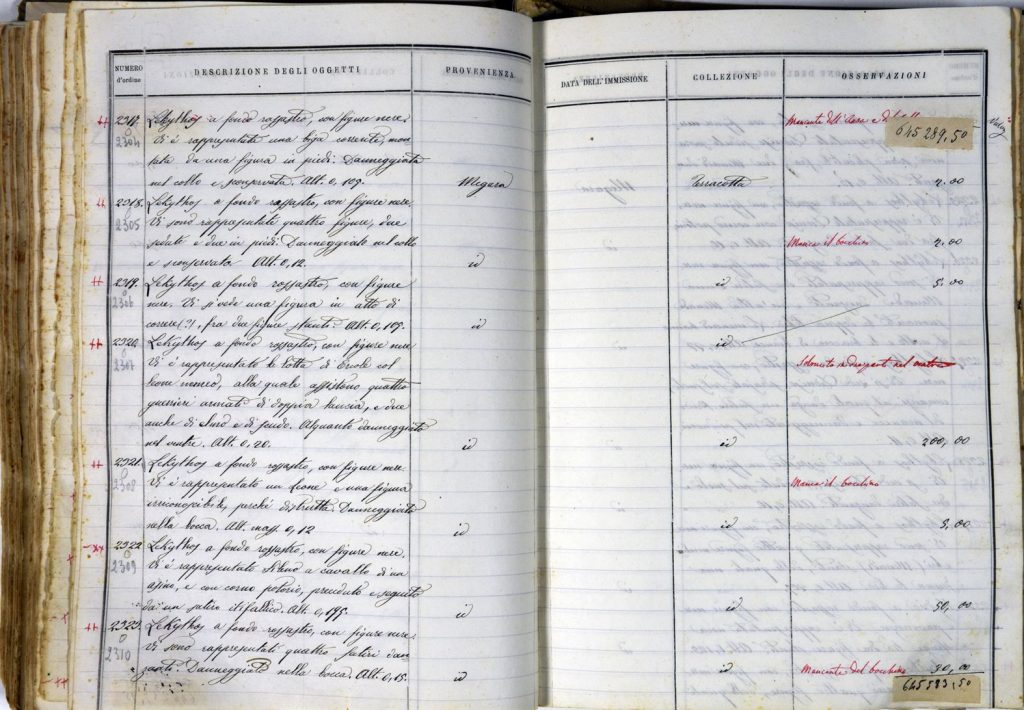 NUMERO d'ordine DESCRIZIONE DEGLI OGGETTI PROVENIENZA DATA DELL'IMMISSIONE COLLEZIONE OSSERVAZIONI
2317. Lekythos a fondo rossastro, con figure nere. Mancante
2304 Vi è rappresentata una biga corrente, mon- 645289,50
tata da una figura in piedi. Danneggiato
nel collo e sconservata. Alt. 0,109. Megara Terracotta 2.00
2318. Lekythos a fondo rossastro, con figure nere.
2305 Vi sono rappresentate quattro figure, due
sedute e due in piedi. Danneggiato nel collo Manca il bocchino 2.00
e sconservata. Alt. 0,12. id
2319. Lekythos a fondo rossastro, con figure id 5.00
2306 nere. Vi si vede una figura in atto di
correre (?), fra due figure stanti. Alt. 0,109. id
2320. Lekythos a fondo rossastro, con figure nere. id
2307 Vi è rappresentata la lotta di Ercole col nel
leone nemeo, alla quale assistono quattro
guerrieri armati di doppia lancia, e due
anche di elmo e di scudo. Alquanto danneggiato
nel ventre. Alt. 0,20. id id 200,00
2321. Lekythos a fondo rossastro, con figure nere.
2308 Vi è rappresentato un leone e una figura Manca il bocchino
irriconoscibile, perché distrutta. Danneggiato
nella bocca. Alt. mass. 0,12 id id 3,00
2322 Lekythos a fondo rossastro, con figure nere.
2309 Vi è rappresentato Sileno a cavallo di un
asino, e con corno potorio, preceduto e seguito
da un satiro itifallico. Alt. 0,175. id id 50,00
2323. Lekythos a fondo rossastro, con figure nere.
2310 Vi sono rappresentati quattro satiri dan-
zanti. Danneggiato nella bocca. Alt. 0,15. id id Mancante del bocchino 30,00
645583,50